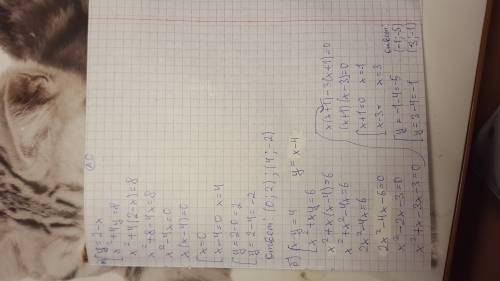 а) { y=2-x
x²+4y=8
x²+4(2-x)=8
x²+8-4x=8
x²-4x=0
x(x-4)=0
[ x=0
x-4=0 x=4
[ y=2-0=2
y=2-4=-2
ответ (0;2);(4;-2)
б) { x-y=4 y=x-4
x²+xy=6
x²+x(x-4)=6
x²+x²-4x=6
2x²-4x=6
2x²-4x-6=0
x²-2x-3=0
x²+x-3x-3=0
x(x+1)-3(x+1)=0
(x+1)(x-3)=0
[ x+1=0 x=1
x-3= x=3
[ y=-1-4=-5
y=3-4=-1
ответ
(-1;-5)
(3;-1)